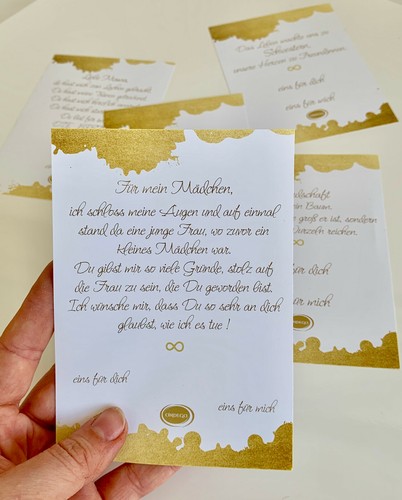 Für mein Mädchen,
ich schloss meine Augen und auf einmal
stand da eine junge Frau, wo zuvor ein
kleines Mädchen war.
Du gibst mir so viele Gründe, stolz auf
die Frau zu sein, die Du geworden bist.
Ich wünsche mir, dass Du so sehr an dich
glaubst, wie ich es tue !
eins für dich
eins für mich
Liebe Mama,
Das Leben machte uns zu
Schwestern,
unsere Herzen zu Freundinnen.
eins für dich
eins für mich
dschaft
ein Baum.
groß er ist, sondern
Wurzeln reichen.
für dich
für mich